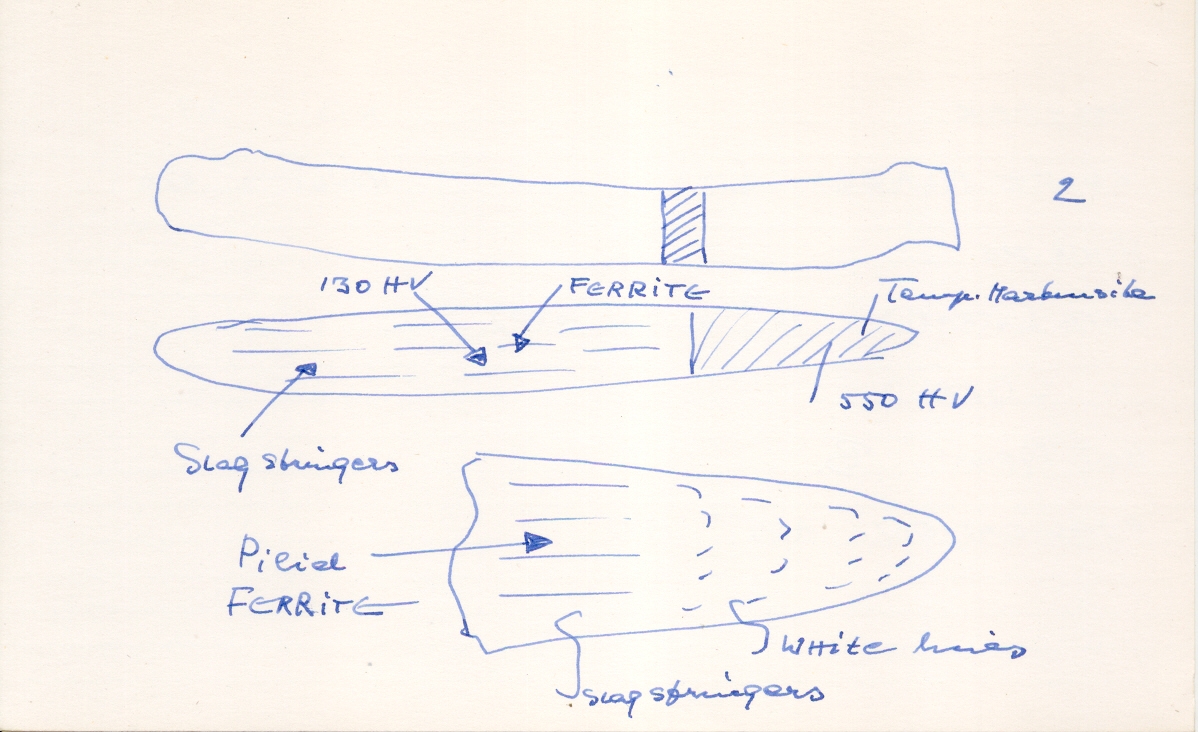 2
130 HV
FERRITE
Temp. Martensite
550 HV
Slag stringers
Piled
FERRITE
WHITE lines
Slag stringers